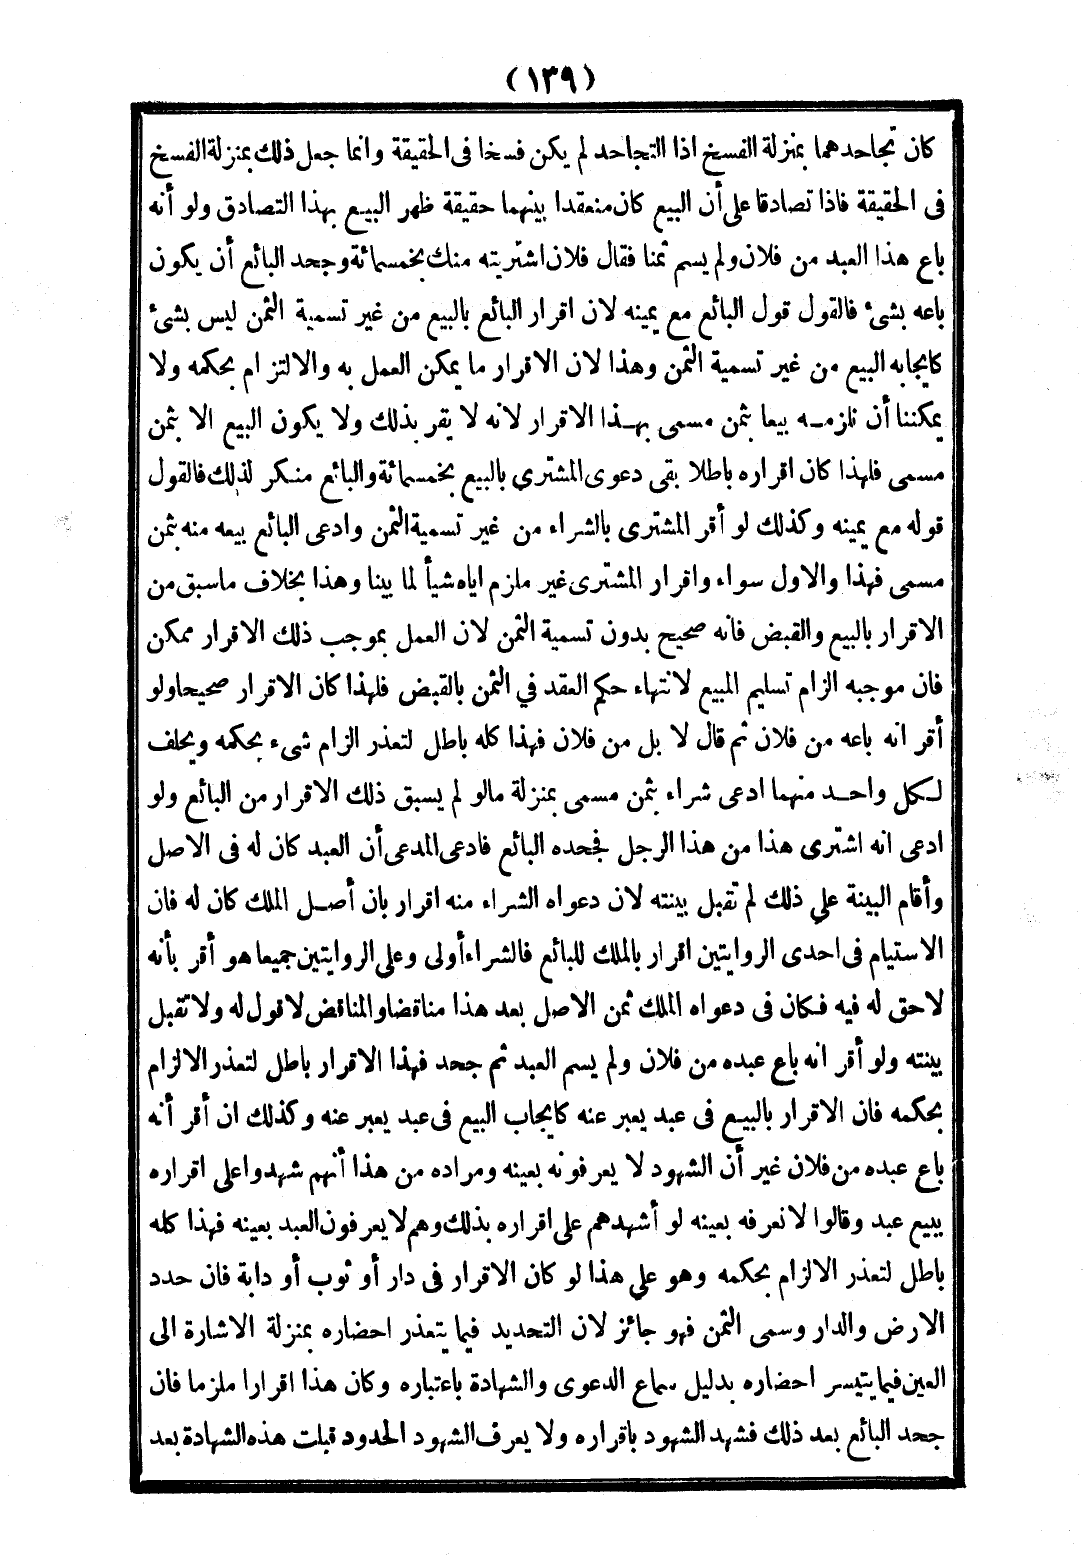 (١٣٩)
كان تجاحدهما بمنزلة الفسخ اذا التجاحد لم يكن فسخا فى الحقيقة وانما جعل ذلك بمنزلة الفسخ
فى الحقيقة فاذا تصادقا على أن البيع كان منعقدا بينهما حقيقة ظهر البيع بهذا التصادق ولو أنه
باع هذا العبد من فلان ولم يسم ثمنا فقال فلان اشتريته منك بخمسمائة وجحد البائع أن يكون
باعه بشئ فالقول قول البائع مع يمينه لان اقرار البائع بالبيع من غير تسمية الثمن ليس بشئ
كايجابه البيع من غير تسمية الثمن وهذا لان الاقرار ما يمكن العمل به والالتزام بحكمه ولا
يمكننا أن نلزمه بيعا بثمن مسمى بهذا الاقرار لانه لا يقر بذلك ولا يكون البيع الا بثمن
مسمى فلهذا كان اقراره باطلا بقى دعوى المشتري بالبيع بخمسمائة والبائع منكر لذلك فالقول
قوله مع يمينه وكذلك لو أقر المشترى بالشراء من غير تسمية الثمن وادعى البائع بيعه منه بثمن
مسمى فهذا والاول سواء واقرار المشترى غير ملزم اياه شيأ لما بينا وهذا بخلاف ما سبق من
الاقرار بالبيع والقبض فانه صحيح بدون تسمية الثمن لان العمل بموجب ذلك الاقرار ممكن
فان موجبه الزام تسليم المبيع لانتهاء حكم العقد في الثمن بالقبض فلهذا كان الاقرار صحيحا ولو
أقر انه باعه من فلان ثم قال لا بل من فلان فهذا كله باطل لتعذر الزام شىء بحكمه ويحلف
لكل واحد منهما ادعى شراء بثمن مسمى بمنزلة مالو لم يسبق ذلك الاقرار من البائع ولو
ادعى انه اشترى هذا من هذا الرجل فجحده البائع فادعى المدعى أن العبد كان له فى الاصل
وأقام البينة علي ذلك لم تقبل بينته لان دعواه الشراء منه اقرار بان أصل الملك كان له فان
الاستيام فى احدى الروايتين اقرار بالملك للبائع فالشراء أولى وعلى الروايتين جميعا هو أقر بأنه
لاحق له فيه فكان فى دعواه الملك ثمن الاصل بعد هذا مناقضا والمناقض لا قول له ولا تقبل
بينته ولو أقر انه باع عبده من فلان ولم يسم العبد ثم جحد فهذا الاقرار باطل لتعذر الالزام
بحكمه فان الاقرار بالبيع فى عبد يعبر عنه كايجاب البيع فى عبد يعبر عنه وكذلك ان أقر أنه
باع عبده من فلان غير أن الشهود لا يعرفونه بعينه ومراده من هذا أنهم شهدوا على اقراره
ببيع عبد وقالوا لا نعرفه بعينه لو أشهدهم على اقراره بذلك وهم لا يعرفون العبد بعينه فهذا كله
باطل لتعذر الالزام بحكمه وهو علي هذا لو كان الاقرار فى دار أو ثوب أو دابة فان حدد
الارض والدار وسمى الثمن فهو جائز لان التحديد فيما يتعذر احضاره بمنزلة الاشارة الى
العين فيما يتيسر احضاره بدليل سماع الدعوى والشهادة باعتباره وكان هذا اقرارا ملزما فان
جحد البائع بعد ذلك فشهد الشهود باقراره ولا يعرف الشهود الحدود قبلت هذه الشهادة بعد